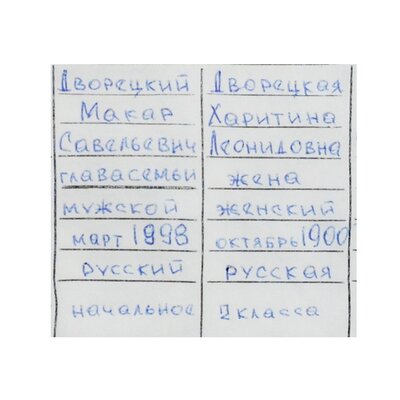 Дворецкий
Макар
Савельевич
глава семьи
мужской
март 1998
русский
начальное
Дворецкая
Харитина
Леонидовна
жена
женский
октябрь 1900
русская
2 класса